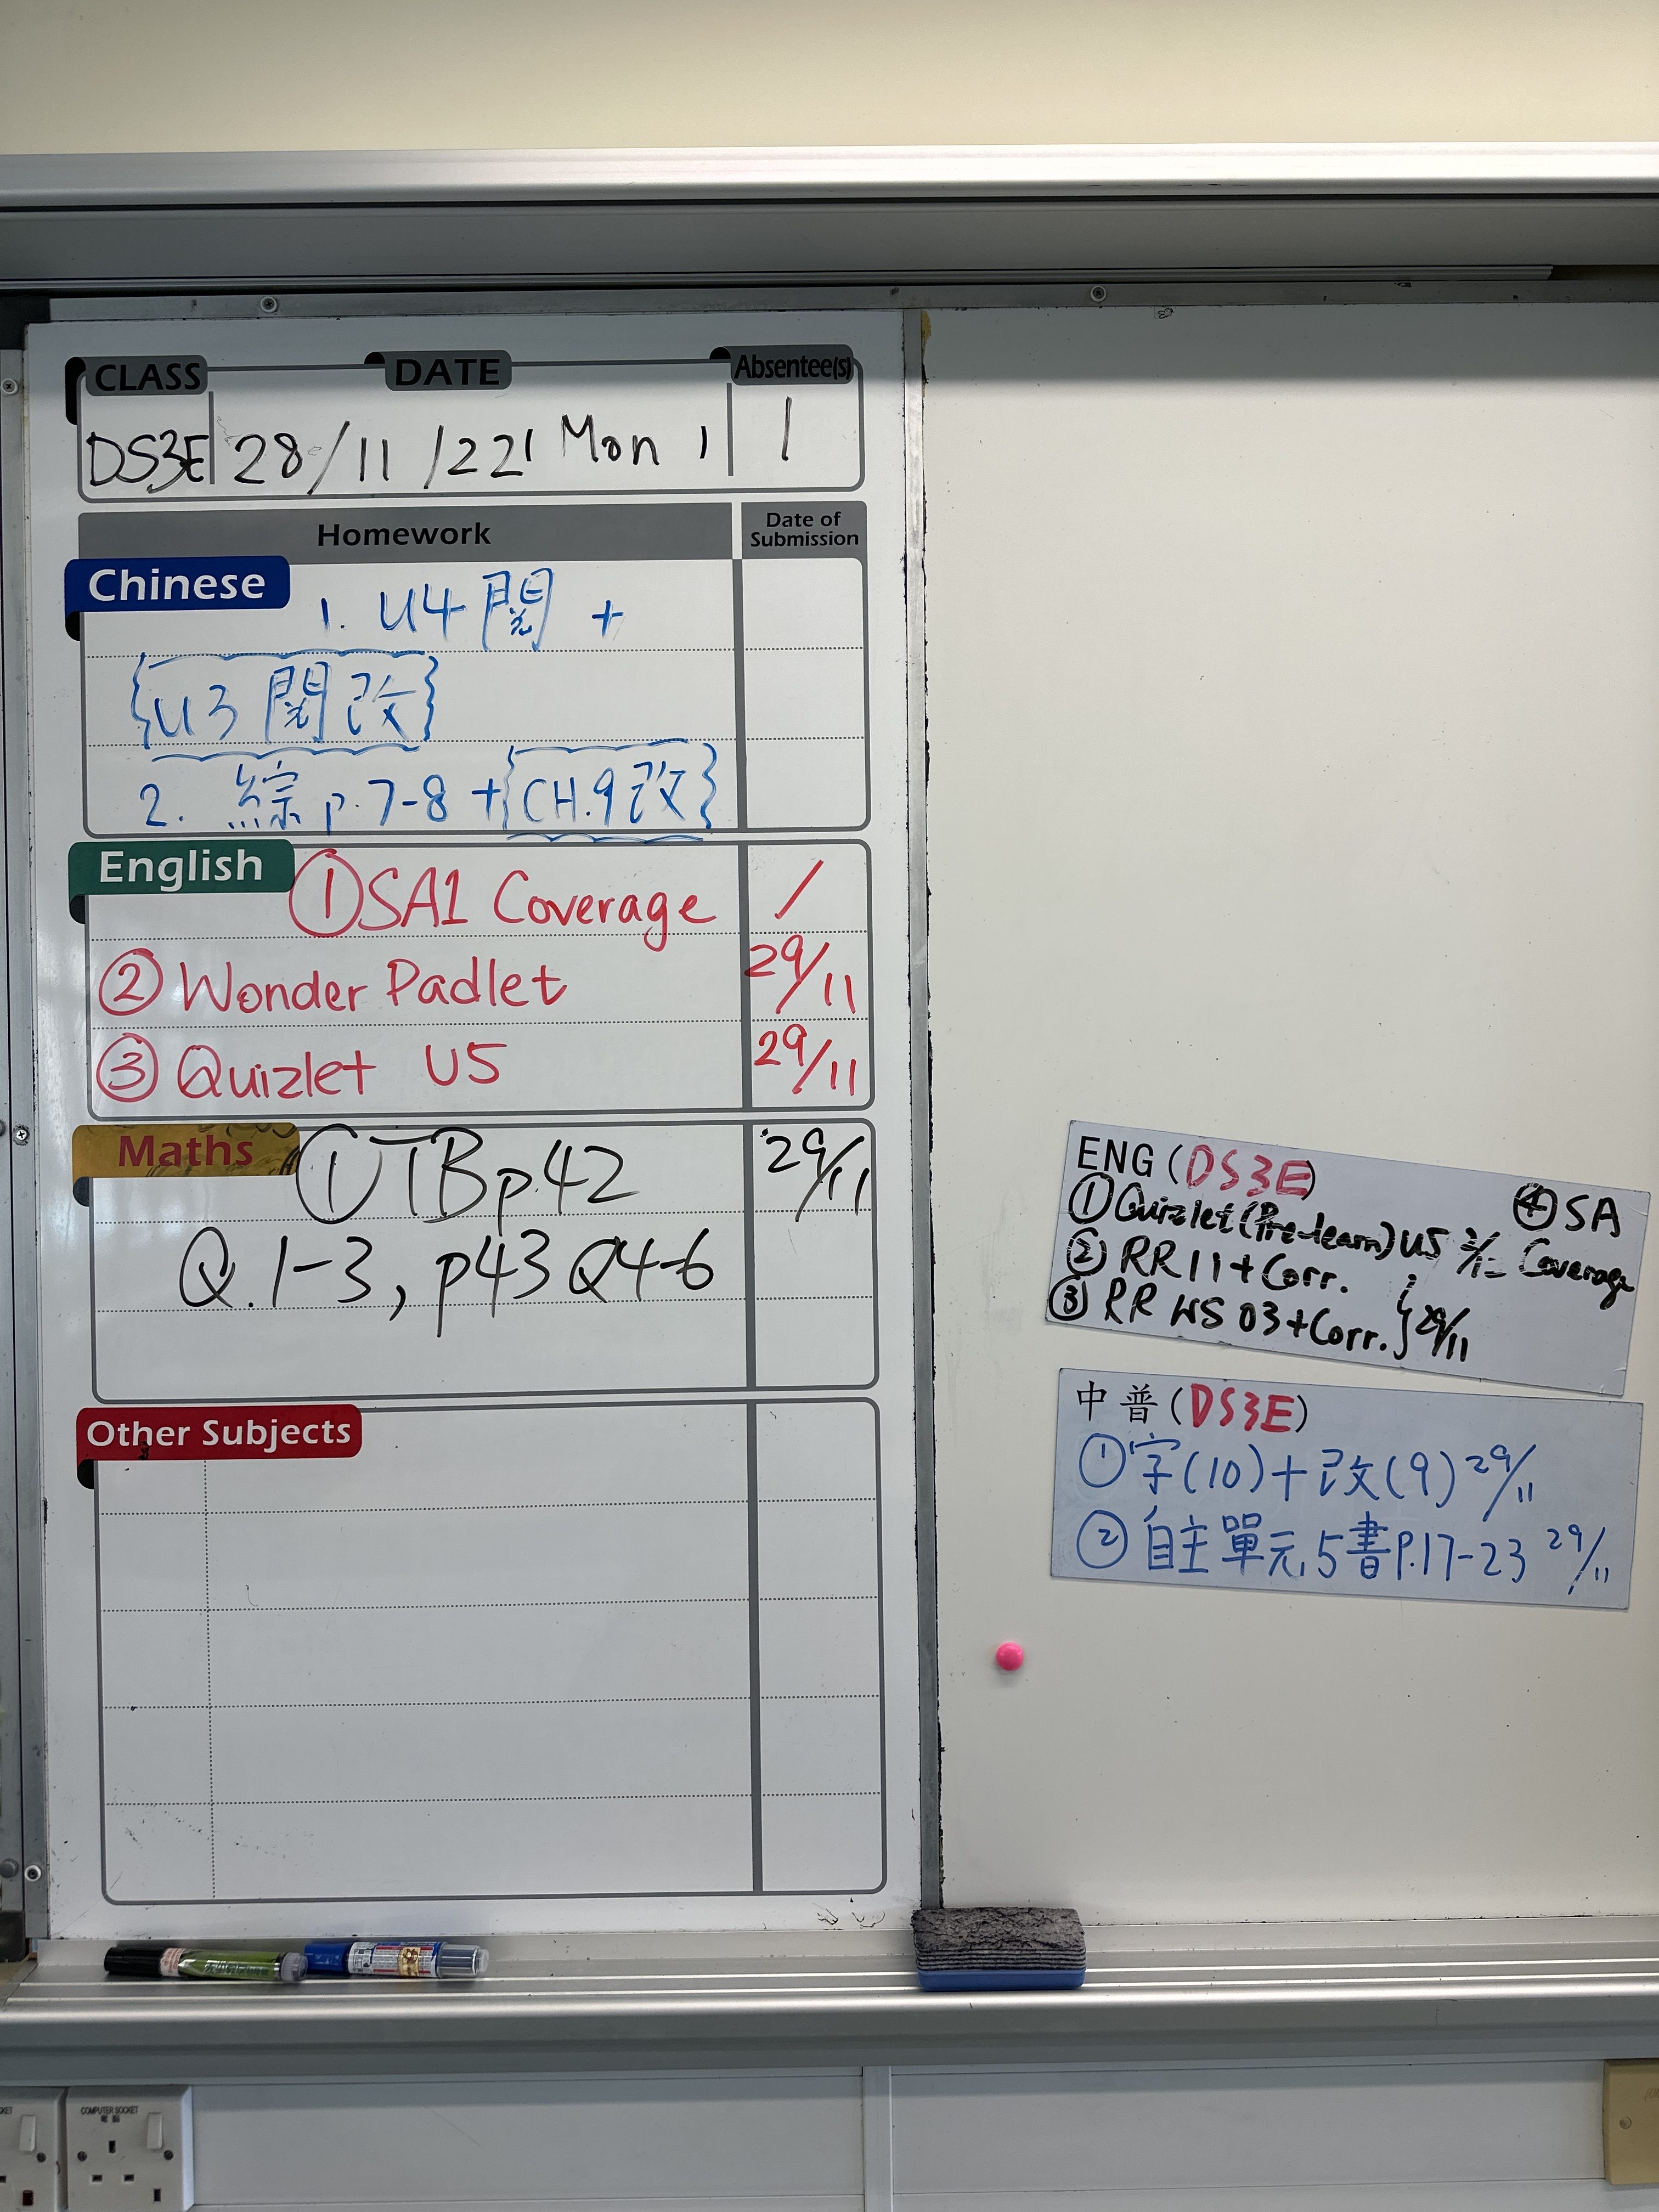 CLASS DATE Absentee(s)
DS3E 28/11/22 Mon 1
Homework Date of Submission
Chinese
1. U4 閱 +
{U3 閱改}
2. 綜 p.7-8 + {CH.9改}
English
① SA1 Coverage /
② Wonder Padlet 29/11
③ Quizlet U5 29/11
Maths
① TB p.42 29/11
Q.1-3, p43 Q4-6
Other Subjects
ENG (DS3E)
① Quizlet (Pre-learn) U5
② RR 11 + Corr.
③ RR WS 03 + Corr. } 29/11
④ SA
Coverage
中普 (DS3E)
① 字(10) + 改(9) 29/11
② 自主單元5書 P.17-23 29/11
COMPUTER SOCKET